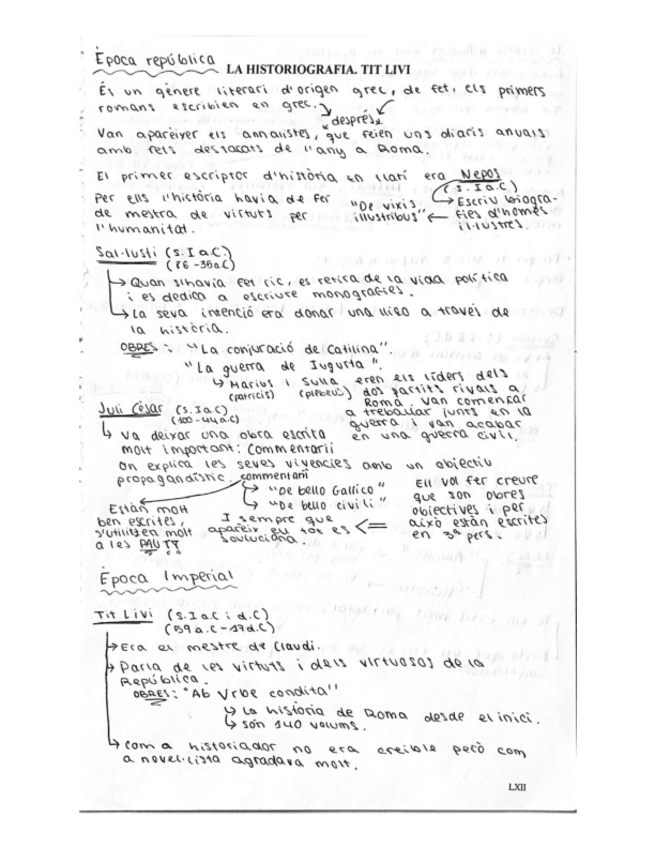 Època república
LA HISTORIOGRAFIA. TIT LIVI
És un gènere literari d'origen grec, de fet, els primers
romans escribien en grec.
després
Van aparèixer els annalistes, que feien uns diaris anuals
amb fets destacats de l'any a Roma.
El primer escriptor d'història en llatí era Nepos
(s. I a.C)
Per ells l'història havia de fer
de mestra de virtuts per
l'humanitat.
"De vixis
illustribus"
Escriu biogra-
fies d'homes
il·lustres.
Sal·lusti (s. I a.C.)
(86-35a.C)
Quan s'havia fet ric, es retira de la vida política
i es dedica a escriure monografies.
La seva intenció era donar una lliçó a través de
la història.
OBRES: "La conjuració de Catilina".
"La guerra de Iugurta".
Màrius i Sulla eren els líders dels
(patricis) (plebeus) dos partits rivals a
Roma. Van començar
a treballar junts en la
guerra i van acabar
en una guerra civil.
Juli Cèsar (s. I a.C)
(100-44a.C)
Va deixar una obra escrita
molt important: Commentarii
On explica les seves vivències amb un objectiu
propagandístic.
commentarii
"De bello Gallico"
"De bello civili"
Estàn molt
ben escrites,
s'utilitzen molt
a les PAU!!
I sempre que
apareix eu tot es
soluciona.
Ell vol fer creure
que són obres
objectives i per
això estàn escrites
en 3ª pers.
Època Imperial
Tit Livi (s. I a.C i d.C)
(59 a.C-17d.C)
Era el mestre de Claudi.
Parla de les virtuts i dels virtuosos de la
República.
OBRES: "Ab Vrbe condita"
La història de Roma desde el inici.
són 140 volums.
Com a historiador no era creïble però com
a novel·lista agradava molt.
LXII